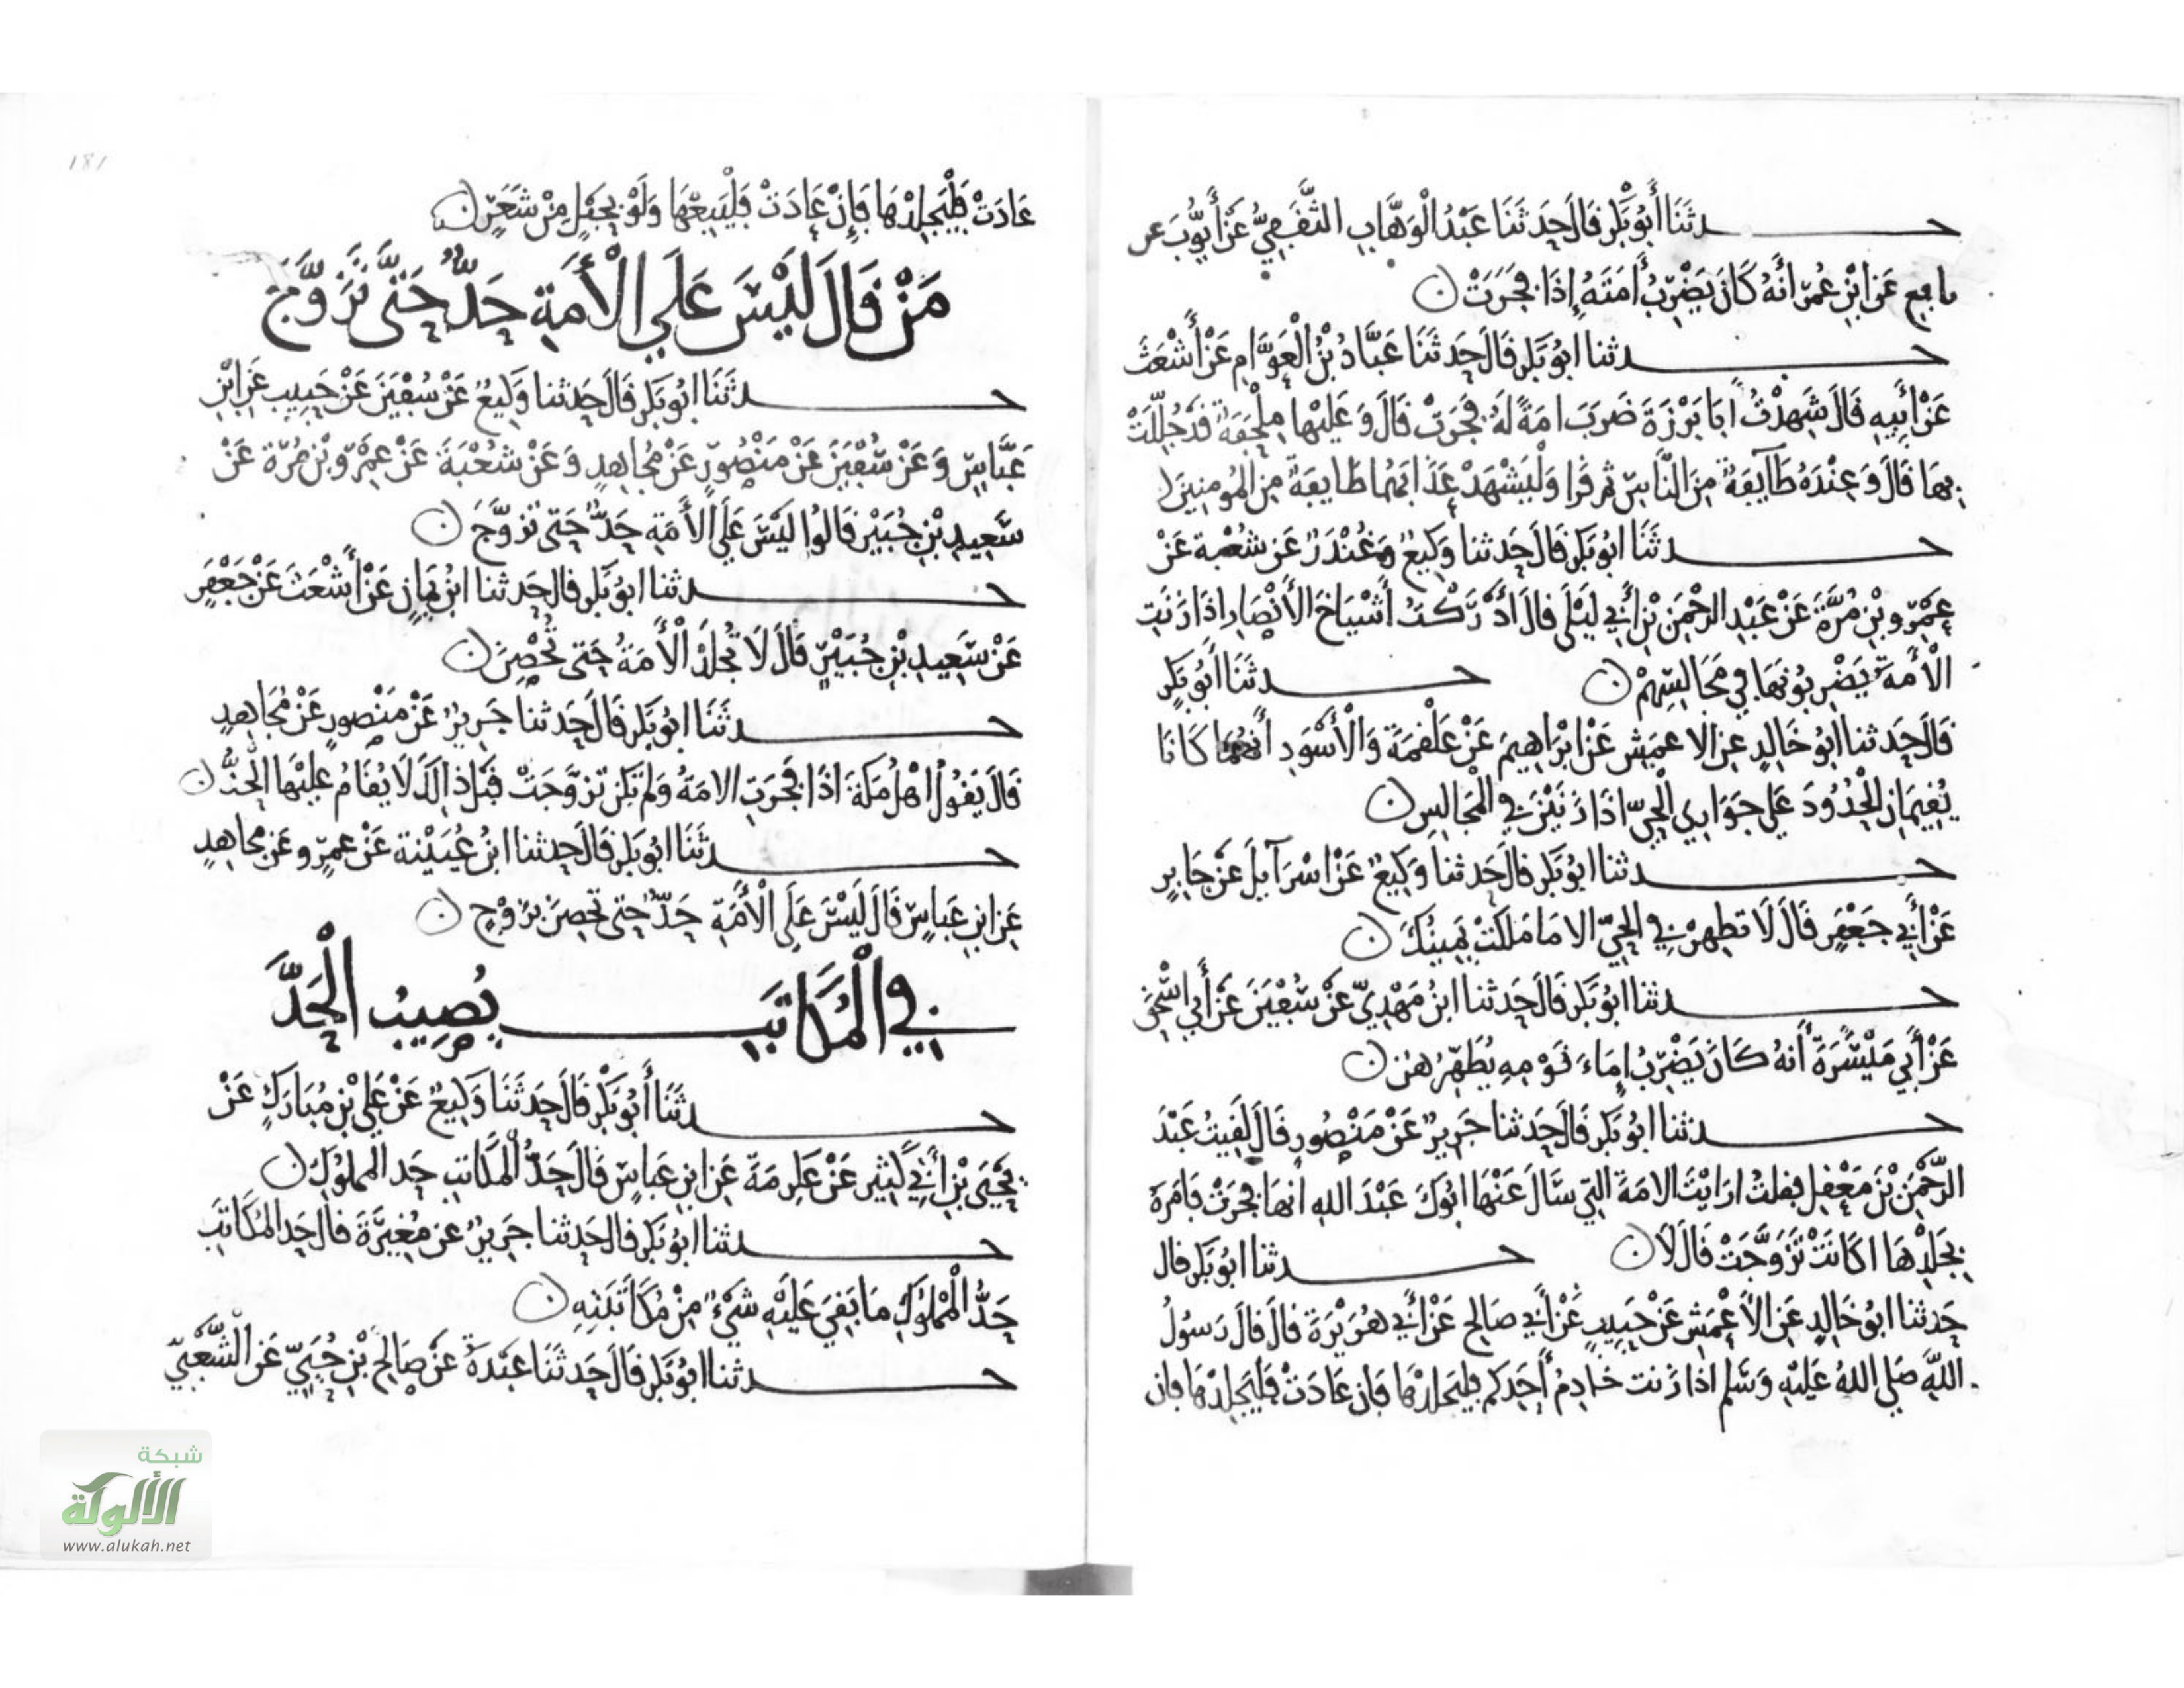 حدثنا أَبُو بَكْر قَالَ حَدثَنَا عَبْدُ الْوَهَّابِ الثَّقَفِيُّ عَنْ أَيُّوبَ عن
نافع عَن ابْنِ عُمَرَ أَنَّهُ كَانَ يَضْرِبُ أَمَتَهُ إِذَا فَجَرَتْ
حدثنا ابُو بَكْر قَالَ حَدثَنَا عَبَّادُ بْنُ الْعَوَّامِ عَنْ أَشْعَثَ
عَنْ أَبِيهِ قَالَ شَهِدْتُ أَبَا بَرْزَةَ ضَرَبَ امَةً لَهُ فَجَرَتْ قَالَ وَعَلَيْهَا مِلْحَفَة قَدْ جُلِّلَتْ
بِهَا قَالَ وَعِنْدَهُ طَآيِفَةٌ مِنَ النَّاسِ ثم قَرَا وَلْيَشْهَدْ عَذَابَهُمَا طَايفَةٌ مِنَ الْمُومِنِينَ
حدثَنَا ابُو بَكر قَالَ حَدثنا وَكِيعٌ وَغُنْدَرٌ عَن شُعْبة عَنْ
عَمْرِو بْنِ مُرَّةَ عَنْ عَبْدِ الرحْمَنِ بْنِ أَبِي لَيْلَى قَالَ أَدْرَكْتُ أَشْيَاخَ الأَنْصَارِ اذَا زَنَتِ
الْأَمَةُ يَضْرِبُونَهَا فِي مَجَالِسِهِمْ حدثَنَا أَبُو بَكر
قَالَ حَدثنا ابُو خَالِدٍ عن الاعمَشِ عَنْ ابْرَاهِيمَ عَنْ عَلْقَمَةَ وَالْأَسْوَدِ أَنهُمَا كَانَا
يُقِيمَانِ الْحُدُودَ عَلَى جَوَارِي الْحَيِّ اذَا زَنَيْنَ فِي الْمَجَالِسِ
حدثنا ابُو بَكْر قَالَ حَدثنا وَكِيعٌ عَنْ اسْرَآيِلَ عَنْ جَابِرٍ
عَنْ أَبِي جَعْفَرٍ قَالَ لَا تطهرْ فِي الحَيّ الا مَا مَلَكَتْ يَمِينُكَ
حدثنا ابُو بَكْر قَالَ حَدثنا ابْنُ مَهْدِيّ عَنْ سُفْيَنَ عَنْ أَبِي اسْحَقَ
عَنْ أَبِي مَيْسَرَةَ أَنهُ كَانَ يَضْرِبُ إِمَاءَ قَوْمِهِ يُطَهِّرُهُن
حدثنا ابُو بَكر قَالَ حَدثنا جَرِيرٌ عَنْ مَنْصُورٍ قَالَ لَقِيتُ عَبْدَ
الرَّحْمَنِ بْنَ مَعْقِلٍ فقلتُ ارَايْتَ الامَةَ الَّتِي سَالَ عَنْهَا ابُوكَ عَبْدَ اللهِ انهَا فجَرَتْ فَامَرَهُ
بِجَلْدِهَا اكَانَتْ تَزَوَّجَتْ قَالَ لَا حدثنا ابُو بَكر قال
حَدثنا ابُو خَالِدٍ عَن الأَعْمَشِ عَنْ حَبِيبٍ عَنْ أَبِي صَالِحٍ عَنْ أَبِي هُرَيْرَةَ قَالَ قَالَ رَسُولُ
اللَّهِ صَلى اللهُ عَلَيْهِ وَسَلم اذا زَنت خَادِمُ أَحَدِكم فليَجلدْهَا فَإِن عَادَتْ فَلْيَجْلِدْهَا فإن
عَادَتْ فَلْيَجْلِدْهَا فَإِنْ عَادَتْ فَلْيَبِعْهَا وَلَوْ بِحَبْلٍ مِنْ شَعَرٍ
مَنْ قَالَ لَيْسَ عَلَى الْأَمَةِ حَدٌّ حَتَّى تَزَوَّجَ
حدثَنَا ابُو بَكر قَالَ حَدثنا وَكِيعٌ عَنْ سُفْيَنَ عَنْ حَبِيبٍ عَنِ ابْنِ
عَبَّاسٍ وَعَنْ سُفْيَنَ عَنْ مَنْصُورٍ عَنْ مُجَاهِدٍ وَعَنْ شُعْبَةَ عَنْ عَمْرِو بْنِ مُرَّةَ عَنْ
سَعِيدِ بْنِ جُبَيْرٍ قَالُوا لَيْسَ عَلَى الأَمَةِ حَدٌّ حَتى تَزَوَّجَ
حدثنا ابُو بَكر قال حَدثنا ابْنُ يَمَانٍ عَنْ أَشْعَثَ عَنْ جَعْفَرٍ
عَنْ سَعِيدِ بْنِ جُبَيْرٍ قَالَ لَا تُجْلَدُ الْأَمَةُ حَتى تُحْصَنَ
حدثَنَا ابُو بَكر قَالَ حَدثنا جَرِيرٌ عَنْ مَنْصُورٍ عَنْ مُجَاهِدٍ
قَالَ يَقُولُ اهْلُ مَكَةَ اذَا فَجَرَتِ الامَةُ وَلَمْ تَكُنْ تَزَوَّجَتْ قَبْلَ ذَلِكَ لَا يُقَامُ عَلَيْهَا الْحَدُّ
حدثَنَا ابُو بَكر قَالَ حَدثنا ابْنُ عُيَيْنة عَنْ عمرٍو عَن مجَاهدٍ
عَنِ ابنِ عَباسٍ قَالَ لَيْسَ عَلَى الْأَمَةِ حَدٌّ حتى تحصَنَ بزَوْجٍ
فِي الْمُكَاتَبِ يُصِيبُ الْحَدَّ
حدثَنَا أَبُو بَكْر قَالَ حَدثَنَا وَكِيعٌ عَنْ عَلِيِّ بْنِ مُبَارَكٍ عَنْ
يَحْيَى بْنِ أَبِي كَثِيرٍ عَنْ عَكْرِمَةَ عَنِ ابنِ عَباسٍ قَالَ حَدُّ الْمُكَاتَبِ حَد المملوكِ
حدثنا ابُو بَكر قال حَدثنا جَرِيرٌ عن مُغِيرَةَ قال حَد المُكَاتَبِ
حَدُّ الْمَمْلُوكِ مَا بَقِيَ عَلَيْهِ شَيْءٌ مِنْ مُكَاتَبَتِهِ
حدثنا ابُو بَكر قَالَ حَدثَنَا عَبْدَةُ عَنْ صَالِحِ بْنِ حُيَيٍّ عَنِ الشَّعْبِيِّ
181
شبكة
الألوكة
www.alukah.net